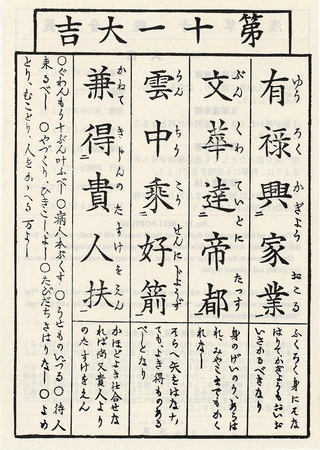 第十一大吉
有禄興家業
ゆう ろく かぎよう おこる
ふくろく身にそな
はりてかぎようもおいお
いさかるべきなり
文華達帝都
ぶん くわ ていとに たつす
身のげいのり、あらは
れ、みやこまでもかく
れなし
雲中乗好箭
うん ちう こう せんにじようず
そらへ矢をはなす、
ても、よき得ものある
べしとなり
兼得貴人扶
かねて きじんの たすけをえん
かほどよき仕合せな
れば尚又貴人より
のたすけをえん
○ぐわんもう十ぶん叶ふべし ○病人本ぶくす ○うせものいづる ○待人
来るべし ○やづくり、ひきこしよし ○たびだちさはりなし ○よめ
とり、むことり、人をかゝへる万よし